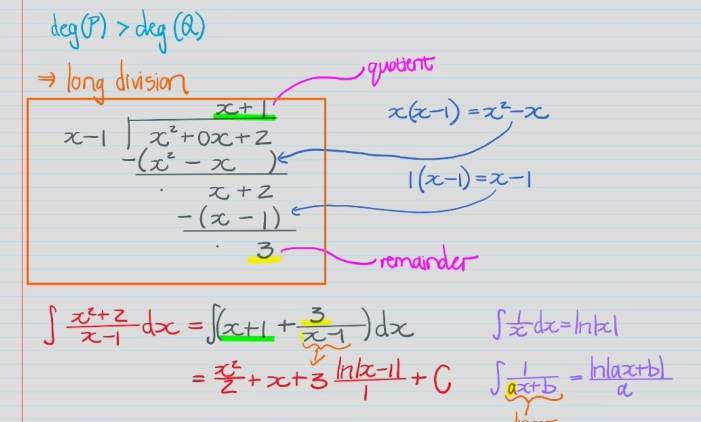 deg(P) > deg(Q)
⇒ long division
quotient
x+1
x-1 ) x²+0x+2
-(x² - x )
x+2
-(x-1)
3
remainder
x(x-1) = x²-x
1(x-1) = x-1
∫ (x²+2)/(x-1) dx = ∫(x+1 + 3/(x-1)) dx
= x²/2 + x + 3 ln|x-1|/1 + C
∫ 1/x dx = ln|x|
∫ 1/(ax+b) = ln|ax+b|/a